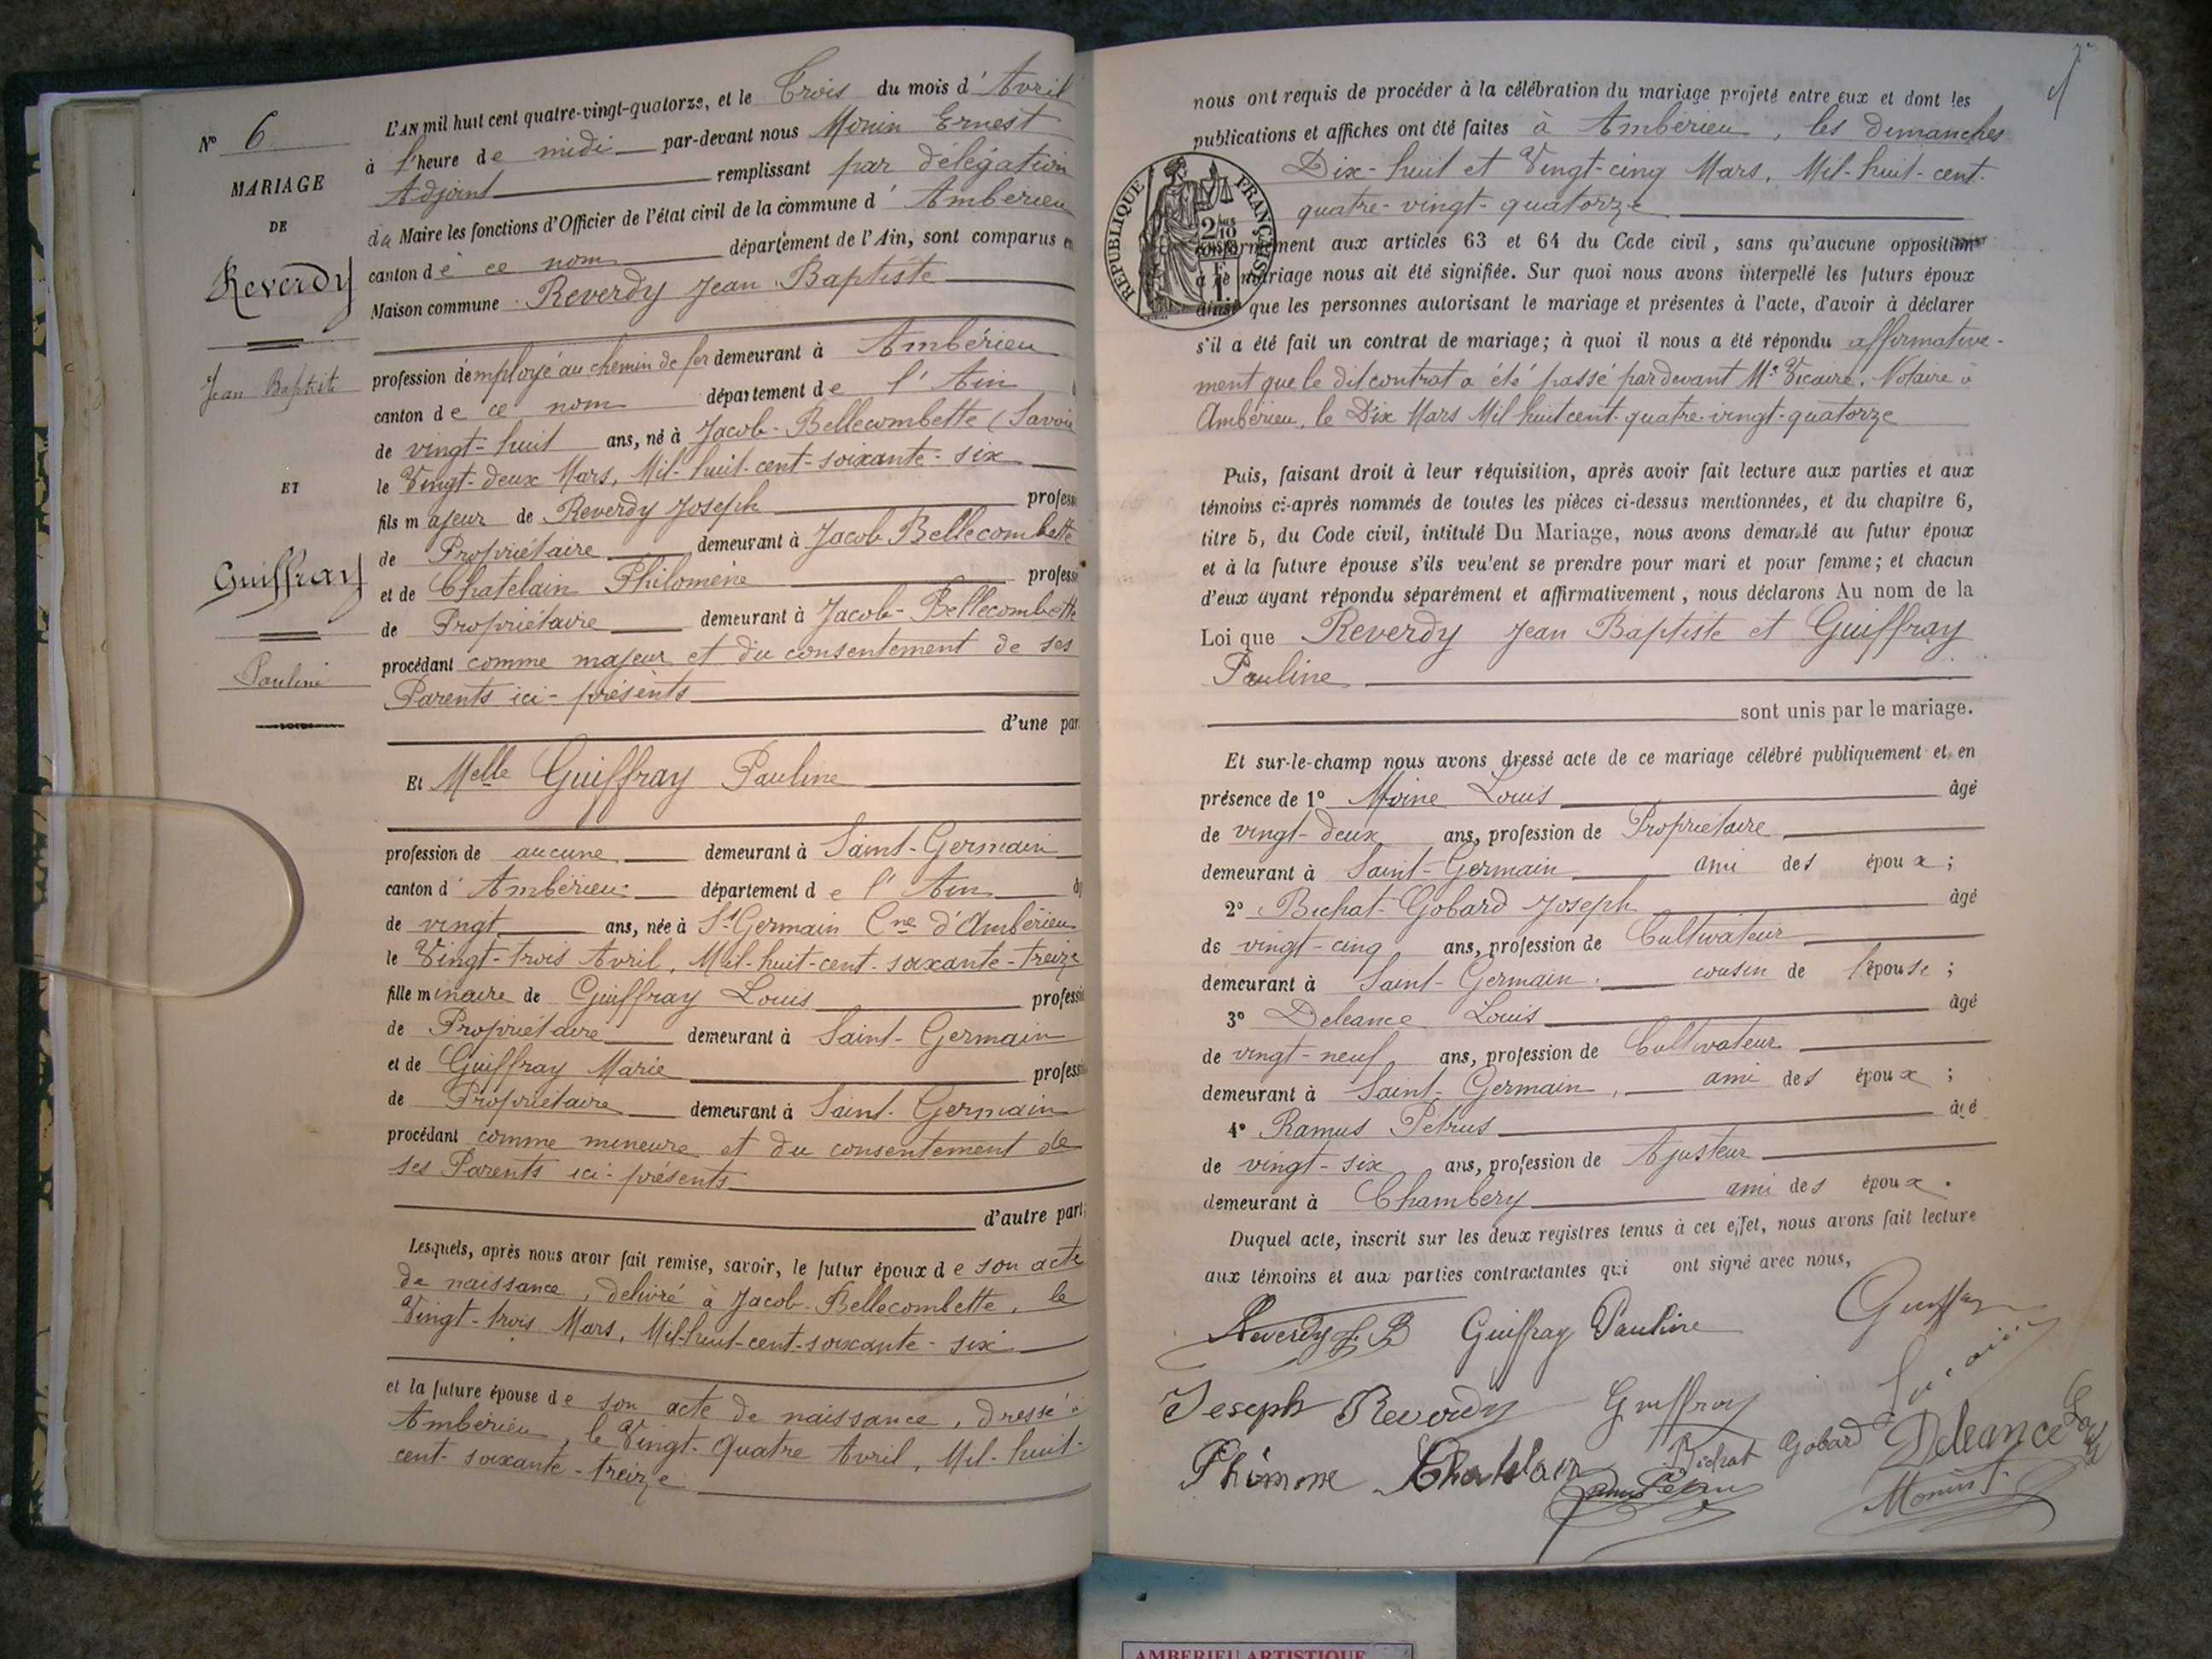 N° 6
MARIAGE
DE
Reverdy
Jean Baptiste
ET
Guiffray
Pauline
L'AN mil huit cent quatre-vingt-quatorze, et le Trois du mois d'Avril
à l'heure de midi par-devant nous Monin Ernest
Adjoint remplissant par délégation
du Maire les fonctions d'Officier de l'état civil de la commune d'Ambérieu
canton de ce nom département de l'Ain, sont comparus en
Maison commune Reverdy Jean Baptiste
profession d'employé au chemin de fer demeurant à Ambérieu
canton de ce nom département de l'Ain
de vingt-huit ans, né à Jacob-Bellecombette (Savoie
le Vingt-deux Mars, Mil-huit-cent-soixante-six
fils majeur de Reverdy Joseph profess
de Propriétaire demeurant à Jacob Bellecombette
et de Chatelain Philomène profess
de Propriétaire demeurant à Jacob-Bellecombette
procédant comme majeur et du consentement de ses
Parents ici-présents
d'une par
Et Melle Guiffray Pauline
profession de aucune demeurant à Saint-Germain
canton d'Ambérieu département de l'Ain
de vingt ans, née à St Germain Cne d'Ambérieu
le Vingt-trois Avril, Mil-huit-cent-soixante-treize
fille mineure de Guiffray Louis professi
de Propriétaire demeurant à Saint-Germain
et de Guiffray Marie professi
de Propriétaire demeurant à Saint-Germain
procédant comme mineure et du consentement de
ses Parents ici-présents
d'autre part;
Lesquels, après nous avoir fait remise, savoir, le futur époux de son acte
de naissance, delivré à Jacob-Bellecombette, le
Vingt-trois Mars, Mil-huit-cent-soixante-six
et la future épouse de son acte de naissance, dressé à
Ambérieu, le Vingt-Quatre Avril, Mil-huit-
cent-soixante-treize
nous ont requis de procéder à la célébration du mariage projeté entre eux et dont les
publications et affiches ont été faites à Ambérieu, les dimanches
Dix-huit et Vingt-cinq Mars, Mil-huit-cent-
quatre-vingt-quatorze
RÉPUBLIQUE FRANÇAISE
conformément aux articles 63 et 64 du Code civil, sans qu'aucune opposition
à ce mariage nous ait été signifiée. Sur quoi nous avons interpellé les futurs époux
ainsi que les personnes autorisant le mariage et présentes à l'acte, d'avoir à déclarer
s'il a été fait un contrat de mariage; à quoi il nous a été répondu affirmative-
ment que le dit contrat a été passé par devant Me Vicaire, Notaire à
Ambérieu, le Dix Mars Mil huit cent-quatre-vingt-quatorze
Puis, faisant droit à leur réquisition, après avoir fait lecture aux parties et aux
témoins ci-après nommés de toutes les pièces ci-dessus mentionnées, et du chapitre 6,
titre 5, du Code civil, intitulé Du Mariage, nous avons demandé au futur époux
et à la future épouse s'ils veulent se prendre pour mari et pour femme; et chacun
d'eux ayant répondu séparément et affirmativement, nous déclarons Au nom de la
Loi que Reverdy Jean Baptiste et Guiffray
Pauline
sont unis par le mariage.
Et sur-le-champ nous avons dressé acte de ce mariage célébré publiquement et en
présence de 1° Moine Louis âgé
de vingt-deux ans, profession de Propriétaire
demeurant à Saint-Germain ami des époux;
2° Bichat-Gobard Joseph âgé
de vingt-cinq ans, profession de Cultivateur
demeurant à Saint-Germain, cousin de l'épouse;
3° Deleance Louis âgé
de vingt-neuf ans, profession de Cultivateur
demeurant à Saint-Germain, ami des époux;
4° Ramus Petrus âgé
de vingt-six ans, profession de Ajusteur
demeurant à Chambery ami des époux.
Duquel acte, inscrit sur les deux registres tenus à cet effet, nous avons fait lecture
aux témoins et aux parties contractantes qui ont signé avec nous,
Reverdy J. B Guiffray Pauline
Joseph Reverdy Guiffray
Bichat Gobard Deleance Louis
AMBERIEU ARTISTIQUE